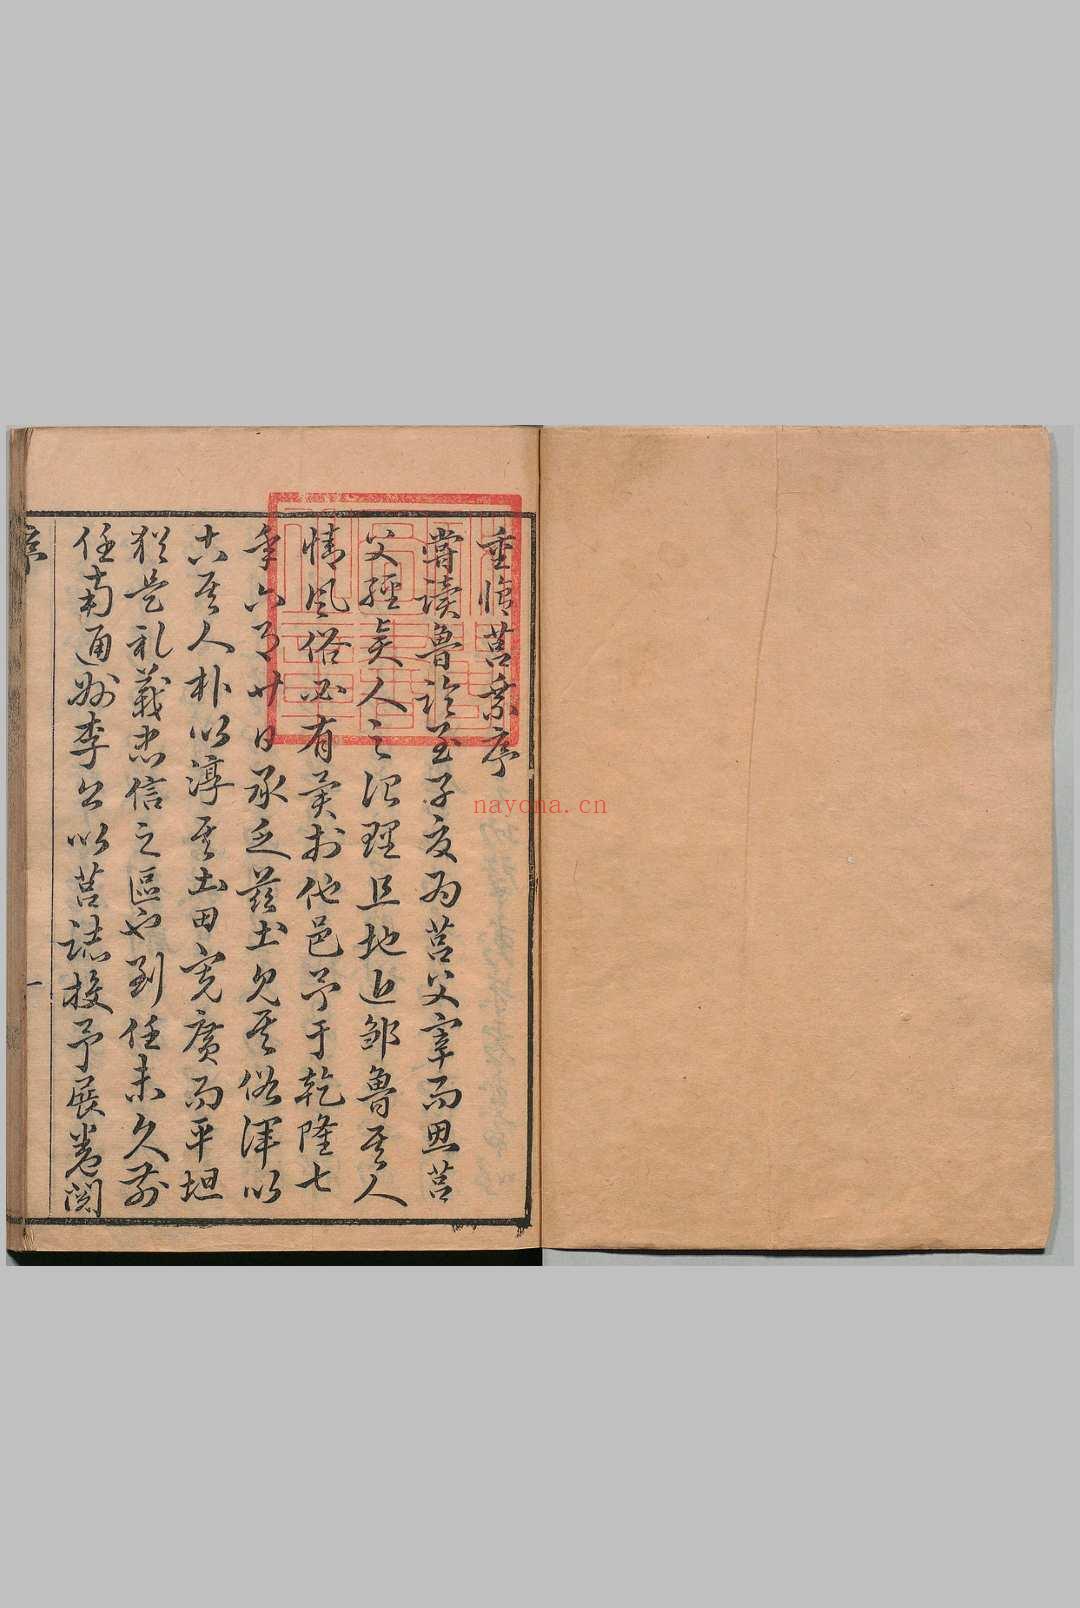 重修莒乘序
嘗读魯论至子夏为莒父宰而思莒
父經矣人之治理且地近邹魯其人
情风俗必有异於他邑予于乾隆七
年六月廿日承乏兹土见其俗浑以
古其人朴以淳其土田宽廣而平坦
犹是礼義忠信之區也到任未久前
任南通州李公以莒誌授予展卷阅
序
一
nayona.cn